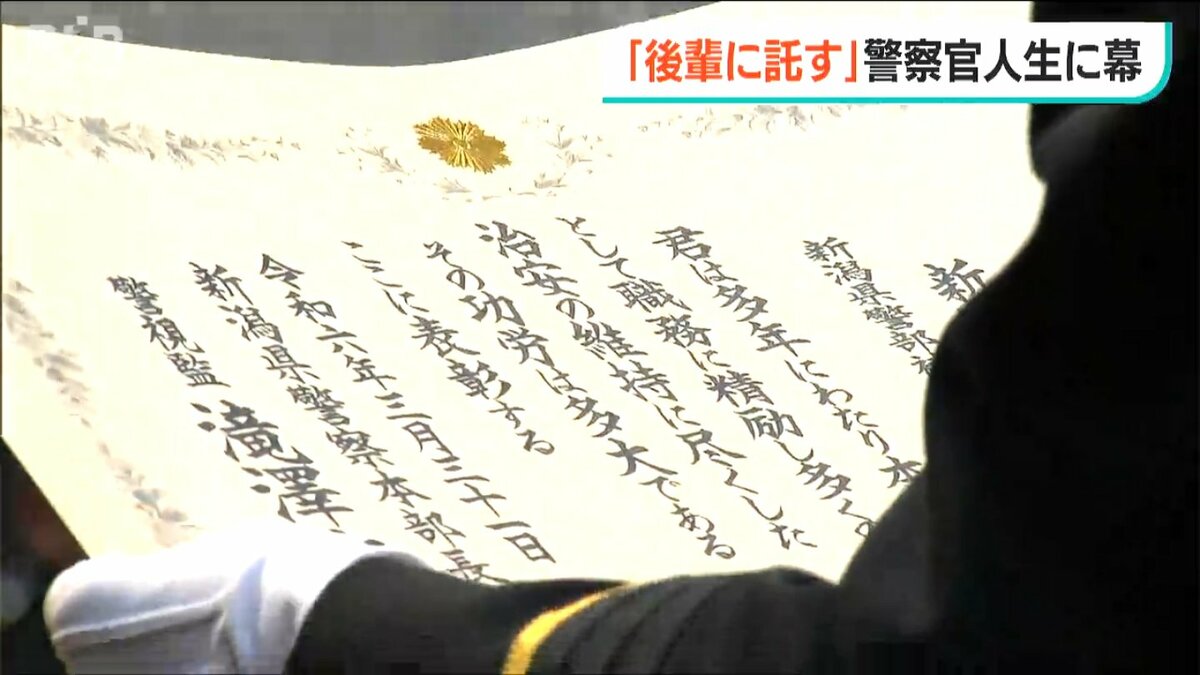 「後輩に託す」警察官人生に幕
新
新潟県警部補
君は多年にわたり本
として職務に精励し多く
治安の維持に尽くした
その功労は多大である
ここに表彰する
令和六年三月三十一日
新潟県警察本部長
警視監 滝澤